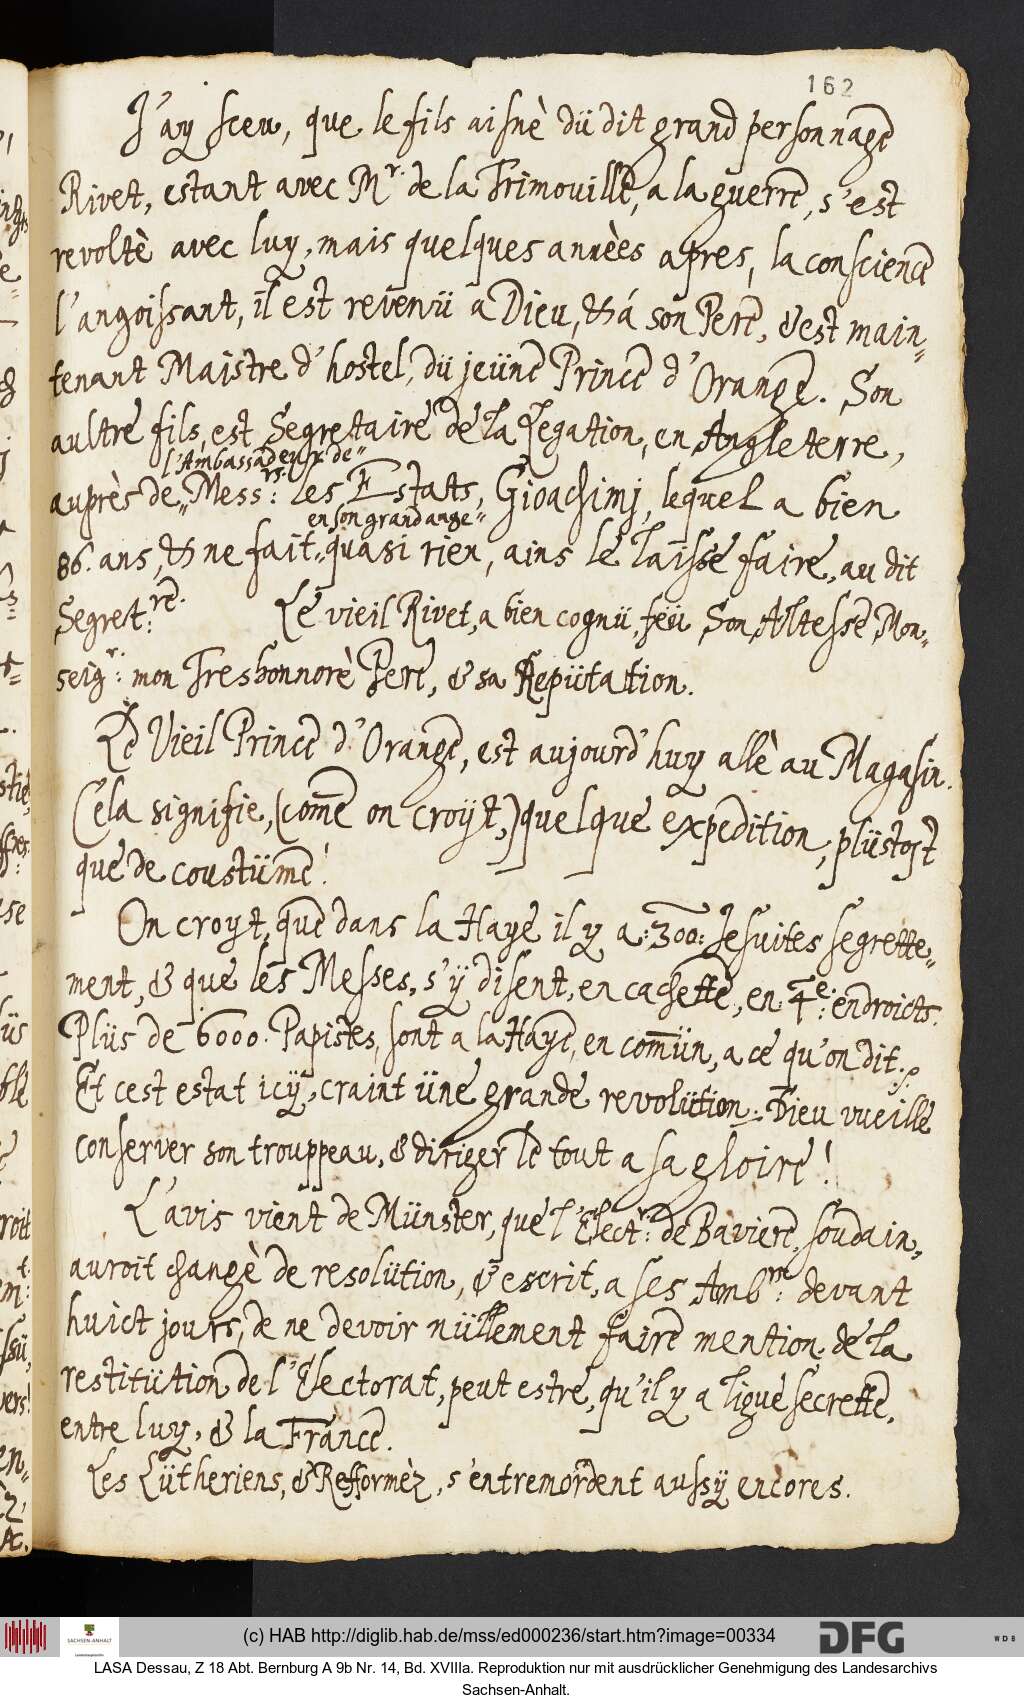 162
J'ay sceu, que le fils aisnè dü dit grand personnage
Rivet, estant avec Mr. de la Trimouille, a la guerre, s'est
revoltè avec luy, mais quelques annèes apres, la conscience
l'angoissant, il est revenü a Dieu, & á son Pere, & est main„
tenant Maistre d'hostel, dü jeüne Prince d'Orange. Son
aultre fils, est Segretaire de la Legation, en Angleterre,
l'Ambassadeur de„
auprès de„ Messrs: les Estats, Gioachimj, lequel a bien
en son grand aage„
86. ans, & ne fait„ quasi rien, ains le laisse faire, au dit
Segretre: Le vieil Rivet, a bien cognü, feü Son Altesse Mon„
seigr: mon Treshonnorè Pere, & sa Repütation.
Le Vieil Prince d'Orange, est aujourd'huy allè au Magasin.
Cela signifie, (come on croyt,) quelque expedition, plüstost
que de coustüme!
On croyt, que dans la Haye il y a: 300: Jesuites segrette„
ment, & que les Messes, s'ÿ disent, en cachette, en 4e: endroicts.
Plüs de 6000. Papistes, sont a la Haye, en comün, a ce qu'on dit.
Et cest estat icÿ, craint üne grande revolütion. Dieu vueille
conserver son trouppeau, & diriger le tout a sa gloire!
L'avis vient de Münster, que l'Electr: de Baviere, soudain„
auroit changè de resolütion, & escrit, a ses Ambrs: devant
huict jours, de ne devoir nüllement faire mention de la
restitütion de l'Electorat, peut estre, qu'il y a liguè secrette,
entre luy, & la France.
Les Lütheriens, & Refformèz, s'entremordent aussÿ encores.
(c) HAB http://diglib.hab.de/mss/ed000236/start.htm?image=00334
SACHSEN-ANHALT
DFG
WDB
LASA Dessau, Z 18 Abt. Bernburg A 9b Nr. 14, Bd. XVIIIa. Reproduktion nur mit ausdrücklicher Genehmigung des Landesarchivs
Sachsen-Anhalt.